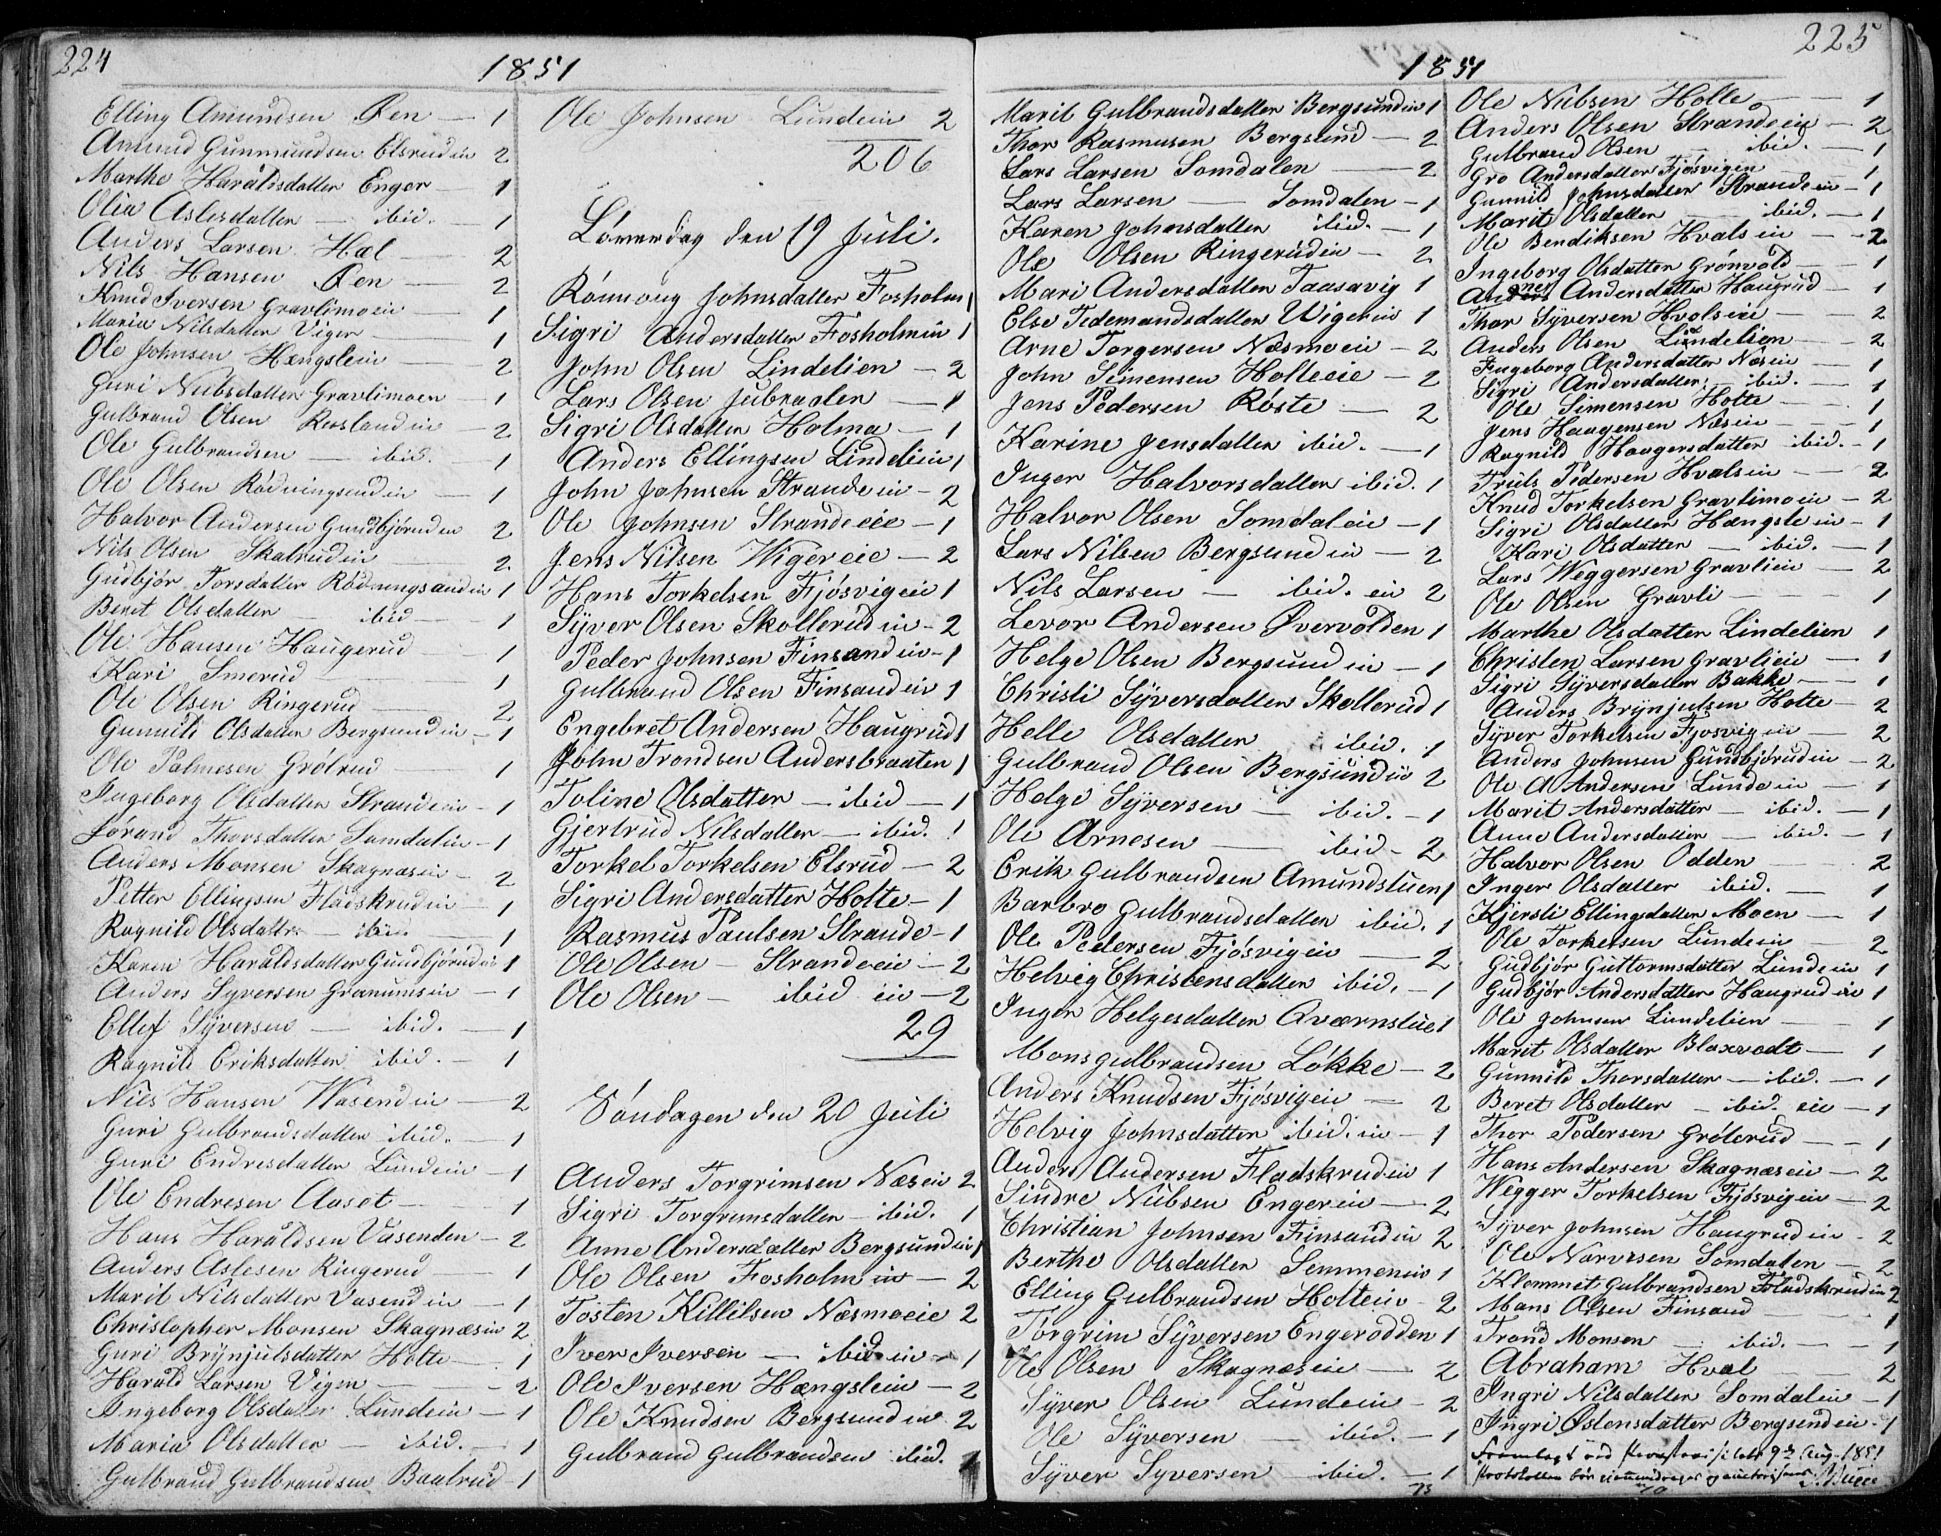 224
1851
Elling Amundsen Øen — 1
Amund Gunmundsen Elsrudein 2
Marthe Haraldsdatter Enger — 1
Olia Aslesdatter — ibid. — 1
Anders Larsen Hæl — 2
Nils Hansen Øen — 2
Knud Iversen Gravlimoein — 1
Maria Nilsdatter Viger — 1
Ole Johnsen Hængslein 2
Guri Nubsdatter Gravlimoen — 1
Gulbrand Olsen — 2
Ole Gulbrandsen — ibid. — 1
Ole Olsen Rødningsandein — 1
Halvor Andersen Gundbjørudein 2
Nils Olsen Skalrudein 2
Gudbjør Torsdatter Rødningsandein 1
Beret Olsdatter — ibid — 1
Ole Hansen Haugerud — 1
Kari Smerud — 1
Ole Olsen Ringerud — 2
Gunnild Olsdatter Bergsundein — 1
Ole Palmesen Grølrud — 1
Ingeborg Olsdatter Strandein — 1
Jørand Thorsdatter Somdalin — 1
Anders Monsen Skagnæsein — 2
Petter Ellingsen Fladskrudein — 1
Ragnild Olsdatter — ibid. — 1
Karen Haraldsdatter Gundbjørudein 1
Anders Syversen Granumsein — 1
Ellef Syversen — ibid. — 1
Ragnild Eriksdatter ibid. — 1
Niels Hansen Wasendein — 2
Guri Gulbrandsdatter ibid. — 1
Guri Endresdatter Lundein — 1
Ole Endresen Aaset — 1
Hans Haraldsen Vasenden — 2
Anders Aslesen Ringerud — 1
Marit Nilsdatter Vasendein — 1
Christopher Monsen Skagnæsin 2
Guri Brynjulsdatter Holte — 1
Harald Larsen Vigen — 2
Ingeborg Olsdatter Lundein — 1
Maria Olsdatter — ibid. — 1
Gulbrand Gulbrandsen Baalrud — 1
Ole Johnsen Lundein 2
206
Løverdag den 19 Juli.
Rønnoug Johnsdatter Fosholm 1
Sigri Andersdatter Fosholmin 1
John Olsen Lindelien — 2
Lars Olsen Jubraaten — 1
Sigri Olsdatter Holma — 1
Anders Ellingsen Lindelien 1
John Johnsen Strandein — 2
Ole Johnsen Strandeie — 1
Jens Nilsen Wigereie — 2
Hans Torkelsen Fjøsvigein 1
Syver Olsen Skollerudein — 2
Peder Johnsen Finsandein — 1
Gulbrand Olsen Finsandein 1
Engebret Andersen Haugrud 1
John Trondsen Andersbraaten 1
Toline Olsdatter — ibid — 1
Gjertrud Nilsdatter — ibid. 1
Torkel Torkelsen Elsrud — 2
Sigri Andersdatter Holte — 1
Rasmus Paulsen Strande — 1
Ole Olsen — Strandeein — 2
Ole Olsen — ibid ein — 2
29
Søndagen den 20 Juli
Anders Torgrimsen Næsein 2
Sigri Torgrimsdatter — ibid. 1
Anne Andersdatter Bergsundein 1
Ole Olsen Fosholmein — 2
Tosten Killilsen Næsmoeie 2
Iver Iversen — ibid ein — 1
Ole Iversen Hængslein — 2
Ole Knudsen Bergsundein 2
Gulbrand Gulbrandsen ibid. 1
225
1851
Marit Gulbrandsdatter Bergsundein 1
Thor Rasmusen Bergsund — 2
Lars Larsen Somdalen — 2
Lars Larsen — Somdalen — 1
Karen Johnsdatter ibid. — 1
Ole Olsen Ringerudein — 2
Mari Andersdatter Taasavig 1
Else Tedemandsdatter Wigerein 1
Arne Torgersen Næsmoein — 2
John Simensen Holteeie — 2
Jens Pedersen Røste — 2
Karine Jensdatter ibid. — 1
Inger Halvorsdatter ibid. 1
Halvor Olsen Somdalein — 1
Lars Nilsen Bergsundein — 2
Nils Larsen — ibid. ein 2
Levor Andersen Øvervolden 1
Helge Olsen Bergsundein — 1
Christi Syversdatter Skollerud 1
Helle Olsdatter ibid. 1
Gulbrand Olsen Bergsundein 2
Helge Syversen — ibid. — 1
Ole Arnesen — ibid — 2
Erik Gulbrandsen Amundstuen 1
Barbro Gulbrandsdatter ibid. 1
Ole Pedersen Fjøsvigein — 2
Helvig Christensdatter ibid. — 1
Inger Helgesdatter Aværnstue 1
Mons Gulbrandsen Løkke — 2
Anders Knudsen Fjøsvigein — 2
Helvig Johnsdatter ibid. ein — 1
Anders Andersen Fladskrudein 1
Sindre Nubsen Engerein — 2
Christian Johnsen Finsandein 2
Berthe Olsdatter Semmenein 1
Elling Gulbrandsen Holtein — 2
Torgrim Syversen Engerodden 1
Ole Olsen Skagnæsein — 2
Syver Olsen Lundein — 2
Ole Syversen — ibid. — 1
Syver Syversen — ibid. — 1
73
Ole Nubsen Holte — 1
Anders Olsen Strandein — 2
Gulbrand Olsen — ibid. — 1
Gro Andersdatter Fjøsvigein — 1
Gunnild Johnsdatter Strandein — 1
Marit Olsdatter — ibid. — 1
Ole Bendiksen Hvalsein — 2
Ingeborg Olsdatter Grønvold — 1
Andersdatter Haugrud — 1
Thor Syversen Hvalsein — 2
Anders Olsen Lindelien — 2
Ingeborg Andersdatter Næsein — 1
Sigri Andersdatter ibid. — 1
Ole Simensen Holte — 1
Jens Haagensen Næsein — 1
Ragnild Haagensdatter ibid. — 1
Truls Pedersen Hvalsein — 2
Knud Torkelsen Gravlimoein — 2
Sigri Olsdatter Hængslein — 1
Kari Olsdatter — ibid. — 1
Lars Weggersen Gravliein — 2
Ole Olsen Gravli — 1
Marthe Olsdatter Lindelien 1
Christen Larsen Gravliein — 1
Sigri Syversdatter Bakke — 1
Anders Brynjulsen Holte — 2
Syver Torkelsen Fjøsvigein — 2
Anders Johnsen Gundbjørudein — 2
Ole A Andersen Lundein — 1
Marit Andersdatter — ibid. — 1
Anne Andersdatter — ibid. — 1
Halvor Olsen Odden — 2
Inger Olsdatter ibid. — 1
Kjersti Ellingsdatter Moen — 1
Ole Torkelsen Lundein — 2
Gudbjør Guttormsdatter Lundein 1
Gudbjør Andersdatter Haugrudein 1
Ole Johnsen Lindelien — 1
Marit Olsdatter Blaxvedt — 1
Gunnild Thorsdatter — ibid. — 1
Beret Olsdatter — ibid. eie — 1
Thor Pedersen Grølrud — 1
Hans Andersen Skagnæsein — 2
Wegger Torkelsen Fjøsvigein — 2
Syver Johnsen Haugrudein — 2
Ole Narvesen Somdalen — 2
Klemmet Gulbrandsen Fladskrudein 2
Mons Olsen Finsand 1
Trond Monsen — ibid. — 1
Abraham Hval 2
Ingri Nilsdatter Somdalein — 1
Ingri Østensdatter Bergsendein — 1
Fremlagt ved 9de Aug. 1851
Protokollen bør